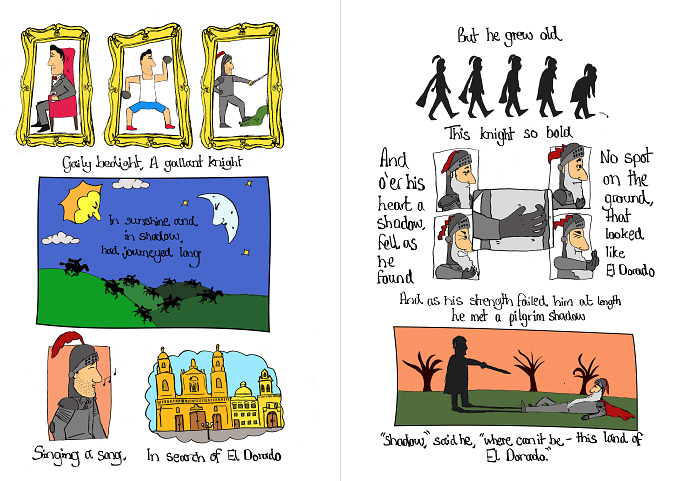 Gaily bedight, A gallant knight
In sunshine and
in shadow,
had journeyed long
Singing a song,
In search of El Dorado
But he grew old
This knight so bold
And
o'er his
heart a
shadow,
fell as
he
found
No spot
on the
ground,
that
looked
like
El Dorado
And as his strength failed him at length
he met a pilgrim shadow
"Shadow," said he, "where can it be - this land of
El Dorado."